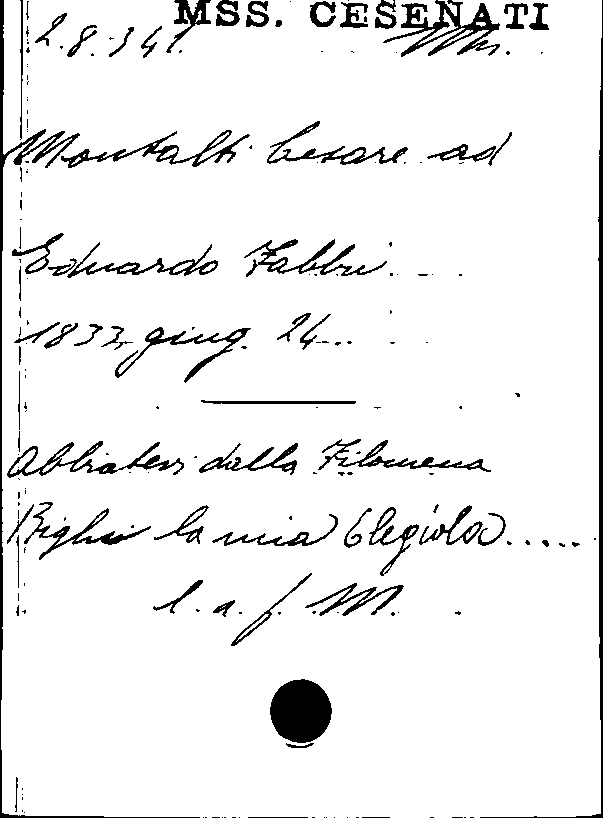 MSS. CESENATI
2.8.341. Ms.
Montalti Cesare ad
Eduardo Fabbri.
1833, giug. 24...
Abbiatevi dalla Filomena
Righi la mia Elegiola.....
l. a. f. M.